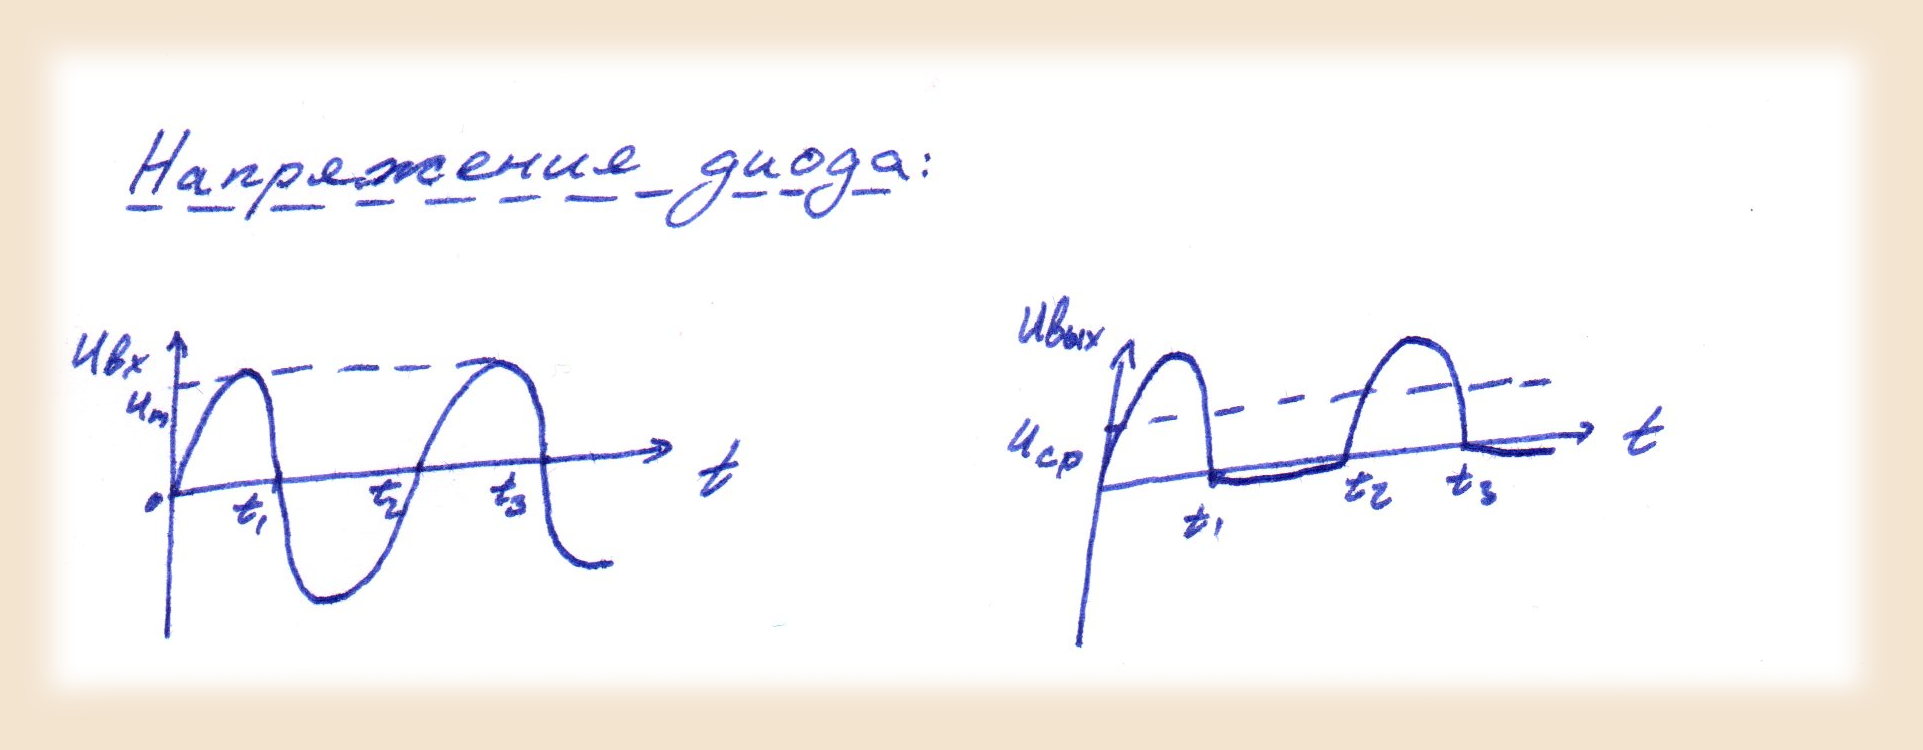 Напряжения диода:
Uвх
Um
0
t1
t2
t3
t
Uвых
Uср
t1
t2
t3
t